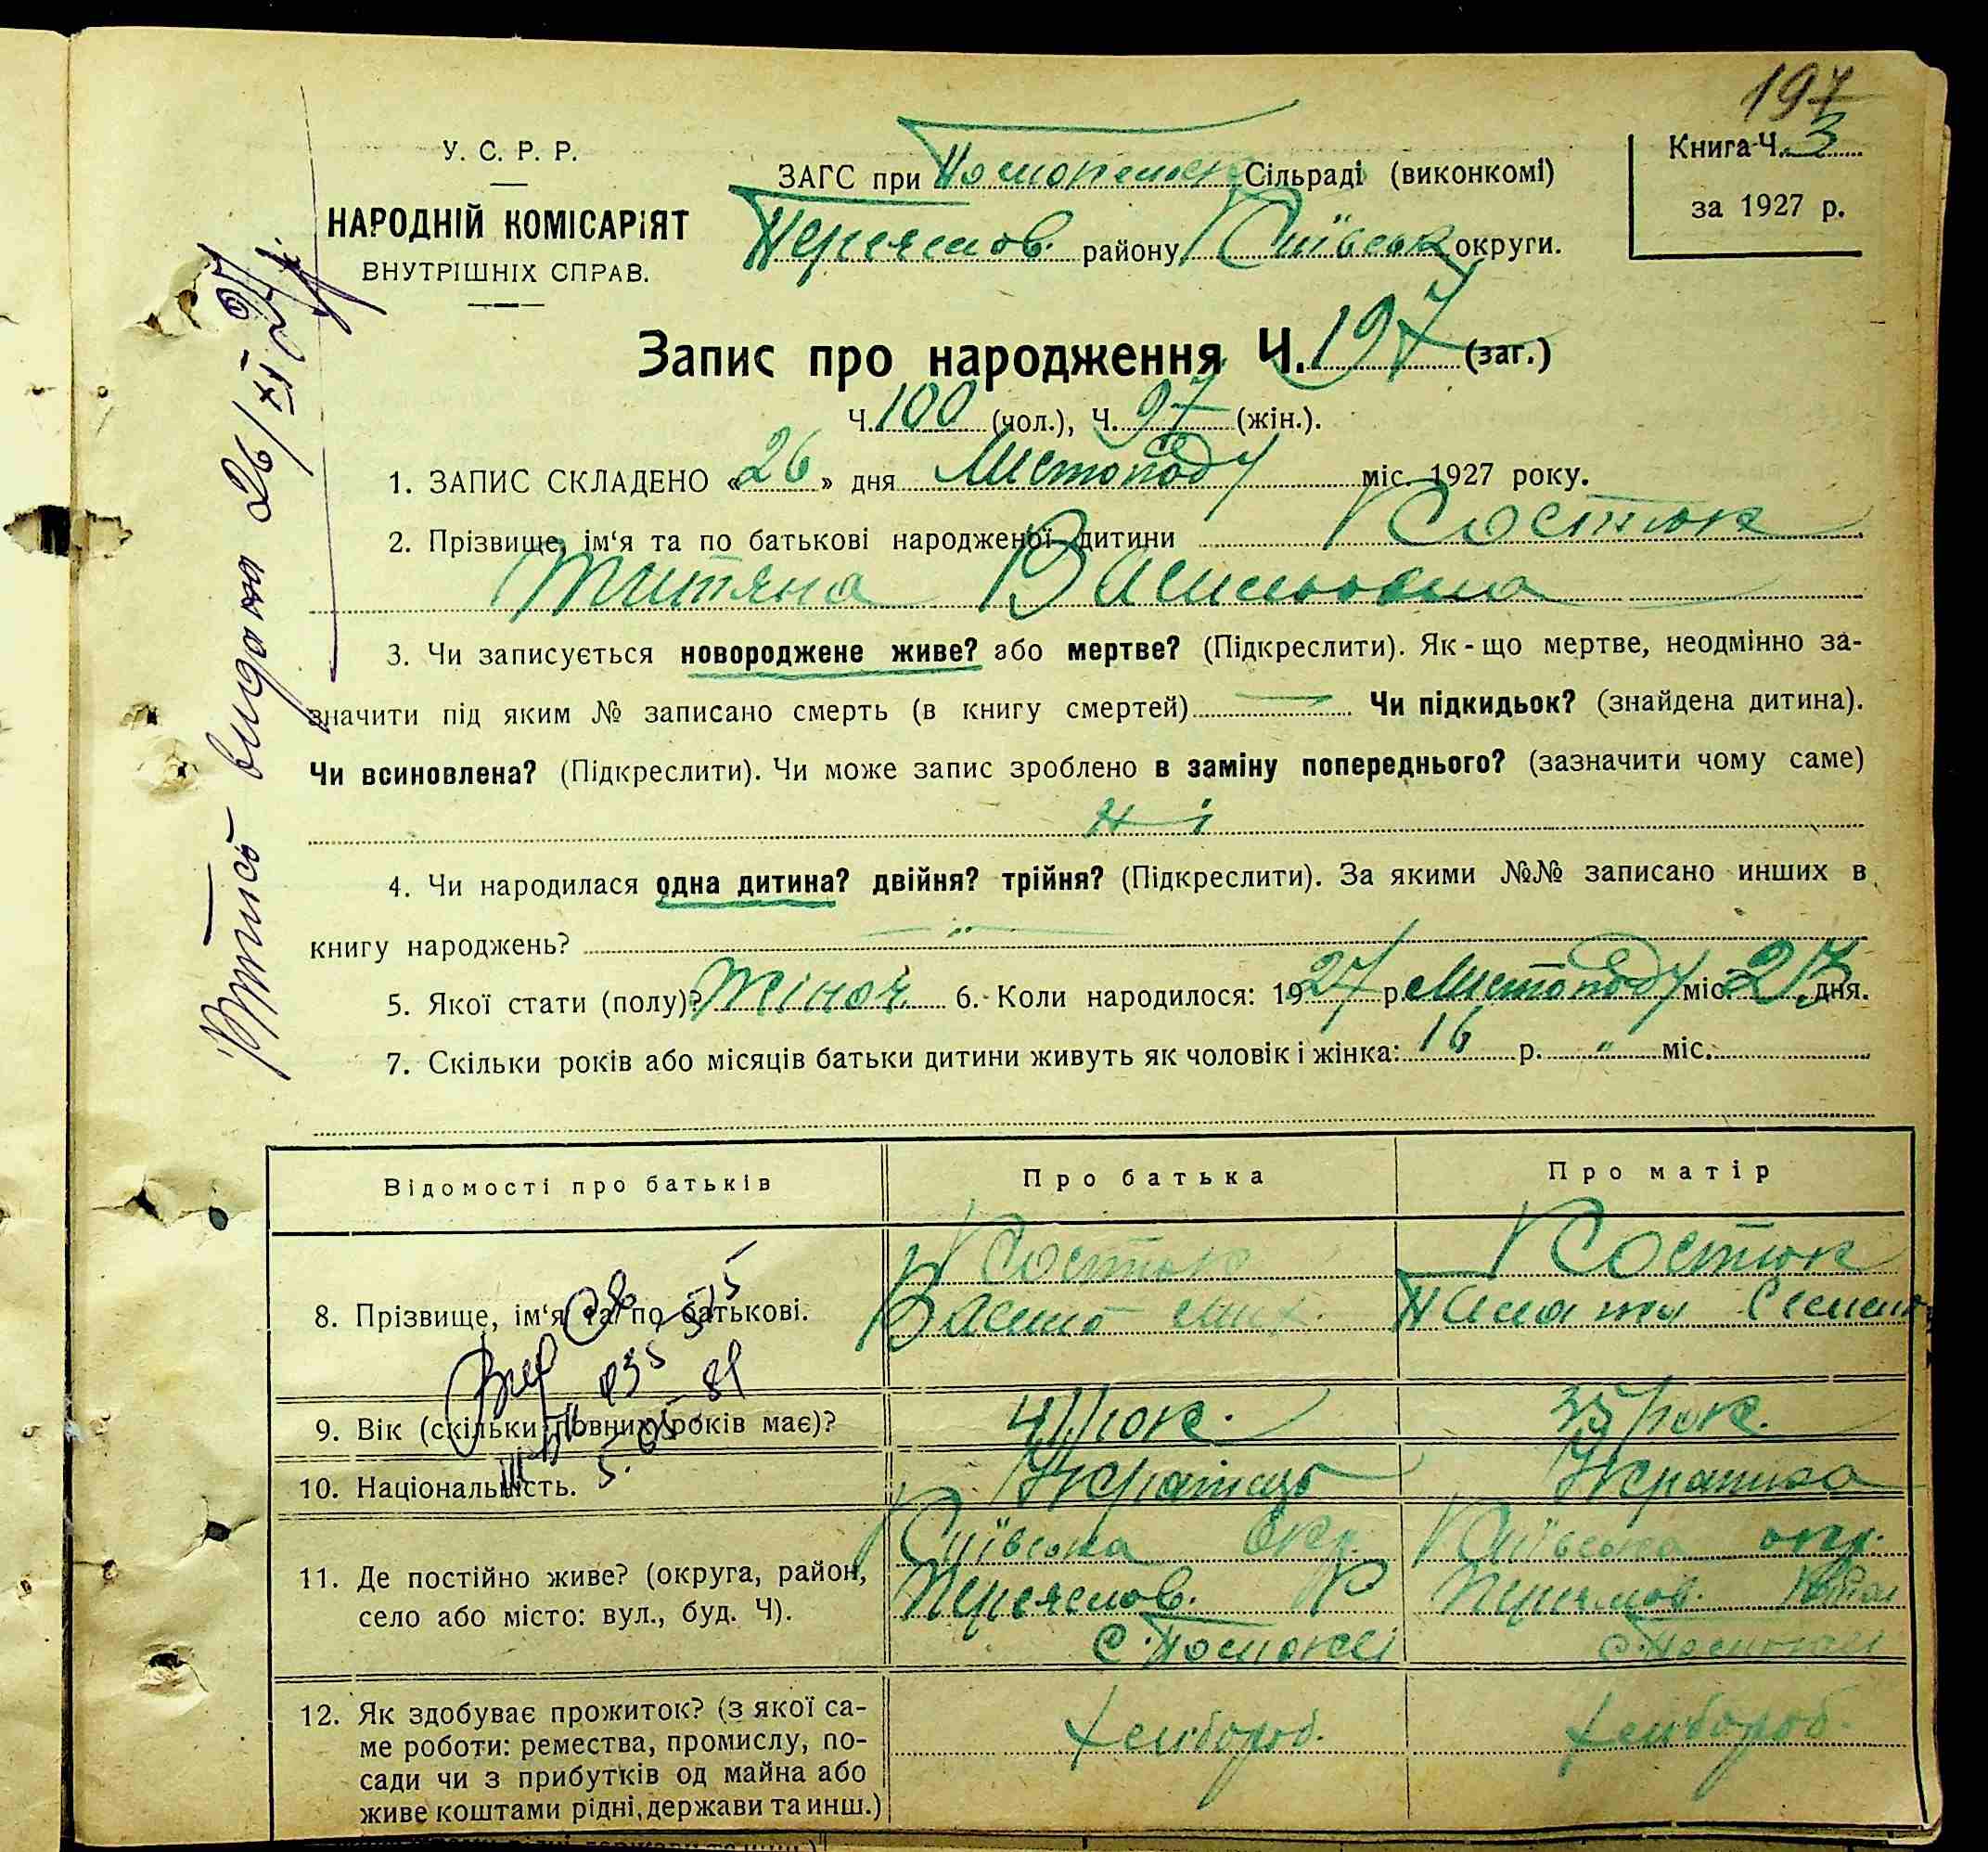 197
У. С. Р. Р.
НАРОДНІЙ КОМІСАРІЯТ
ВНУТРІШНІХ СПРАВ.
ЗАГС при Сільраді (виконкомі)
Переяслов. району Київськ округи.
Книга Ч. 3
за 1927 р.
Запис про народження Ч. 197 (заг.)
Ч. 100 (чол.), Ч. 97 (жін.).
1. ЗАПИС СКЛАДЕНО «26» дня Листопаду міс. 1927 року.
2. Прізвище, ім‘я та по батькові народженої дитини Костюк
Титяна Васильовна
3. Чи записується новороджене живе? або мертве? (Підкреслити). Як-що мертве, неодмінно за-
значити під яким № записано смерть (в книгу смертей) — Чи підкидьок? (знайдена дитина).
Чи всиновлена? (Підкреслити). Чи може запис зроблено в заміну попереднього? (зазначити чому саме)
ні
4. Чи народилася одна дитина? двійня? трійня? (Підкреслити). За якими №№ записано инших в
книгу народжень?
5. Якої стати (полу)? жіноч. 6. Коли народилося: 1927 р. Листопаду міс. 23 дня.
7. Скільки років або місяців батьки дитини живуть як чоловік і жінка: 16 р. " міс.
Відомості про батьків Про батька Про матір
8. Прізвище, ім‘я та по батькові.
Костюк
Василь Мих.
Костюк
9. Вік (скільки повних років має)? 41 рок. 35 рок.
10. Національність. Українець Українка
11. Де постійно живе? (округа, район,
село або місто: вул., буд. Ч).
Київська окр.
Переяслов. Р
Київська окр.
Переяслов. район
12. Як здобуває прожиток? (з якої са-
ме роботи: ремества, промислу, по-
сади чи з прибутків од майна або
живе коштами рідні, держави та инш.)
хлібороб.
хлібороб.
видана 26/XI 27